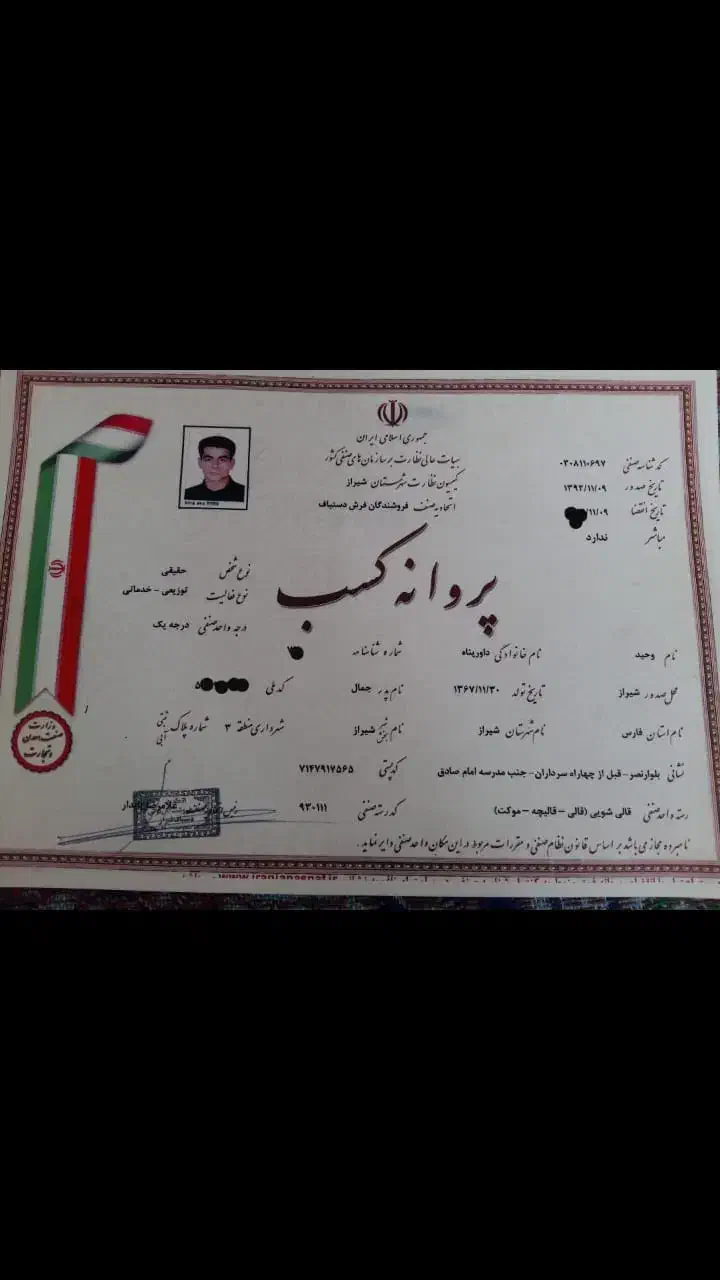 جمهوری اسلامی ایران
هیات عالی نظارت بر سازمان های صنفی کشور
کمیسیون نظارت شهرستان شیراز
اتحادیه صنف فروشندگان فرش دستباف
کد شناسه صنفی ۰۳۰۸۱۱۰۶۹۷
تاریخ صدور ۱۳۹۲/۱۱/۰۹
تاریخ انقضا /۱۱/۰۹
مباشر ندارد
پروانه کسب
نوع شخص حقیقی
نوع فعالیت توزیعی - خدماتی
درجه واحد صنفی درجه یک
نام وحید نام خانوادگی داورپناه شماره شناسنامه
محل صدور شیراز تاریخ تولد ۱۳۶۷/۱۱/۳۰ نام پدر جمال کد ملی ۵
نام استان فارس نام شهرستان شیراز نام شهر بخش شیراز شهرداری منطقه ۳ شماره پلاک ثبتی آبی
نشانی بلوارنصر - قبل از چهاراه سرداران - جنب مدرسه امام صادق کد پستی ۷۱۴۷۹۱۷۵۶۵
رسته واحد صنفی قالی شویی (قالی - قالیچه - موکت) کد رسته صنفی ۹۳۰۱۱۱
نامبرده مجاز می باشد بر اساس قانون نظام صنفی و مقررات مربوط در این مکان واحد صنفی دایر نماید.
وزارت
صنعت، معدن
و تجارت
www.iranianasnaf.ir